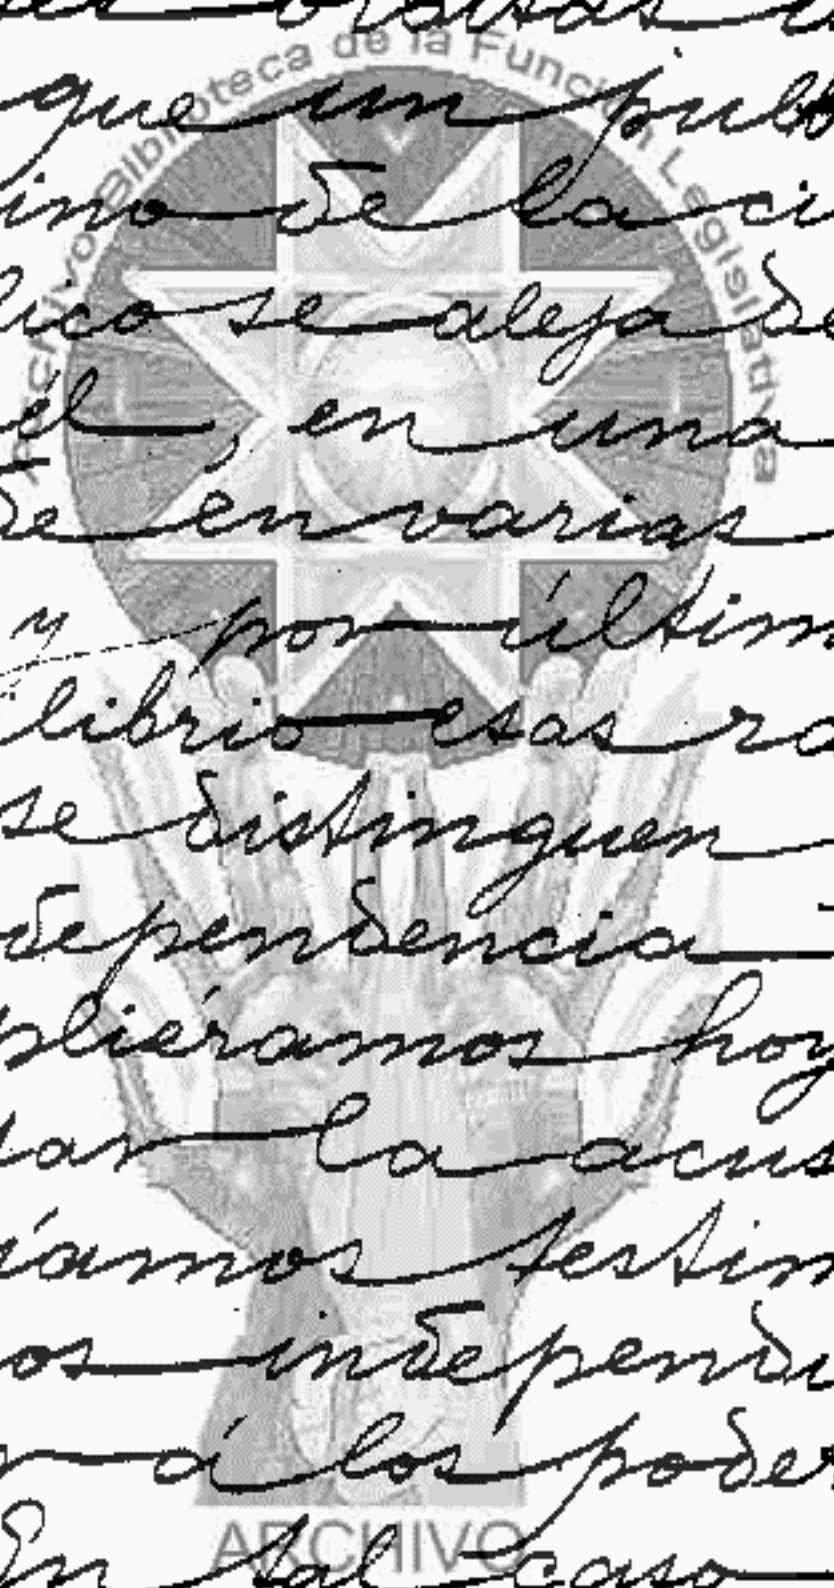 Archivo Biblioteca de la Función Legislativa
que un púb
ino de la ci
lico se aleja de
él, en una
de en varias
y por últim
librio esas ra
se distinguen
dependencia
pliéramos hoy
tar la acus
íamos testim
os independi
á los poder
ARCHIVO
En tal caso